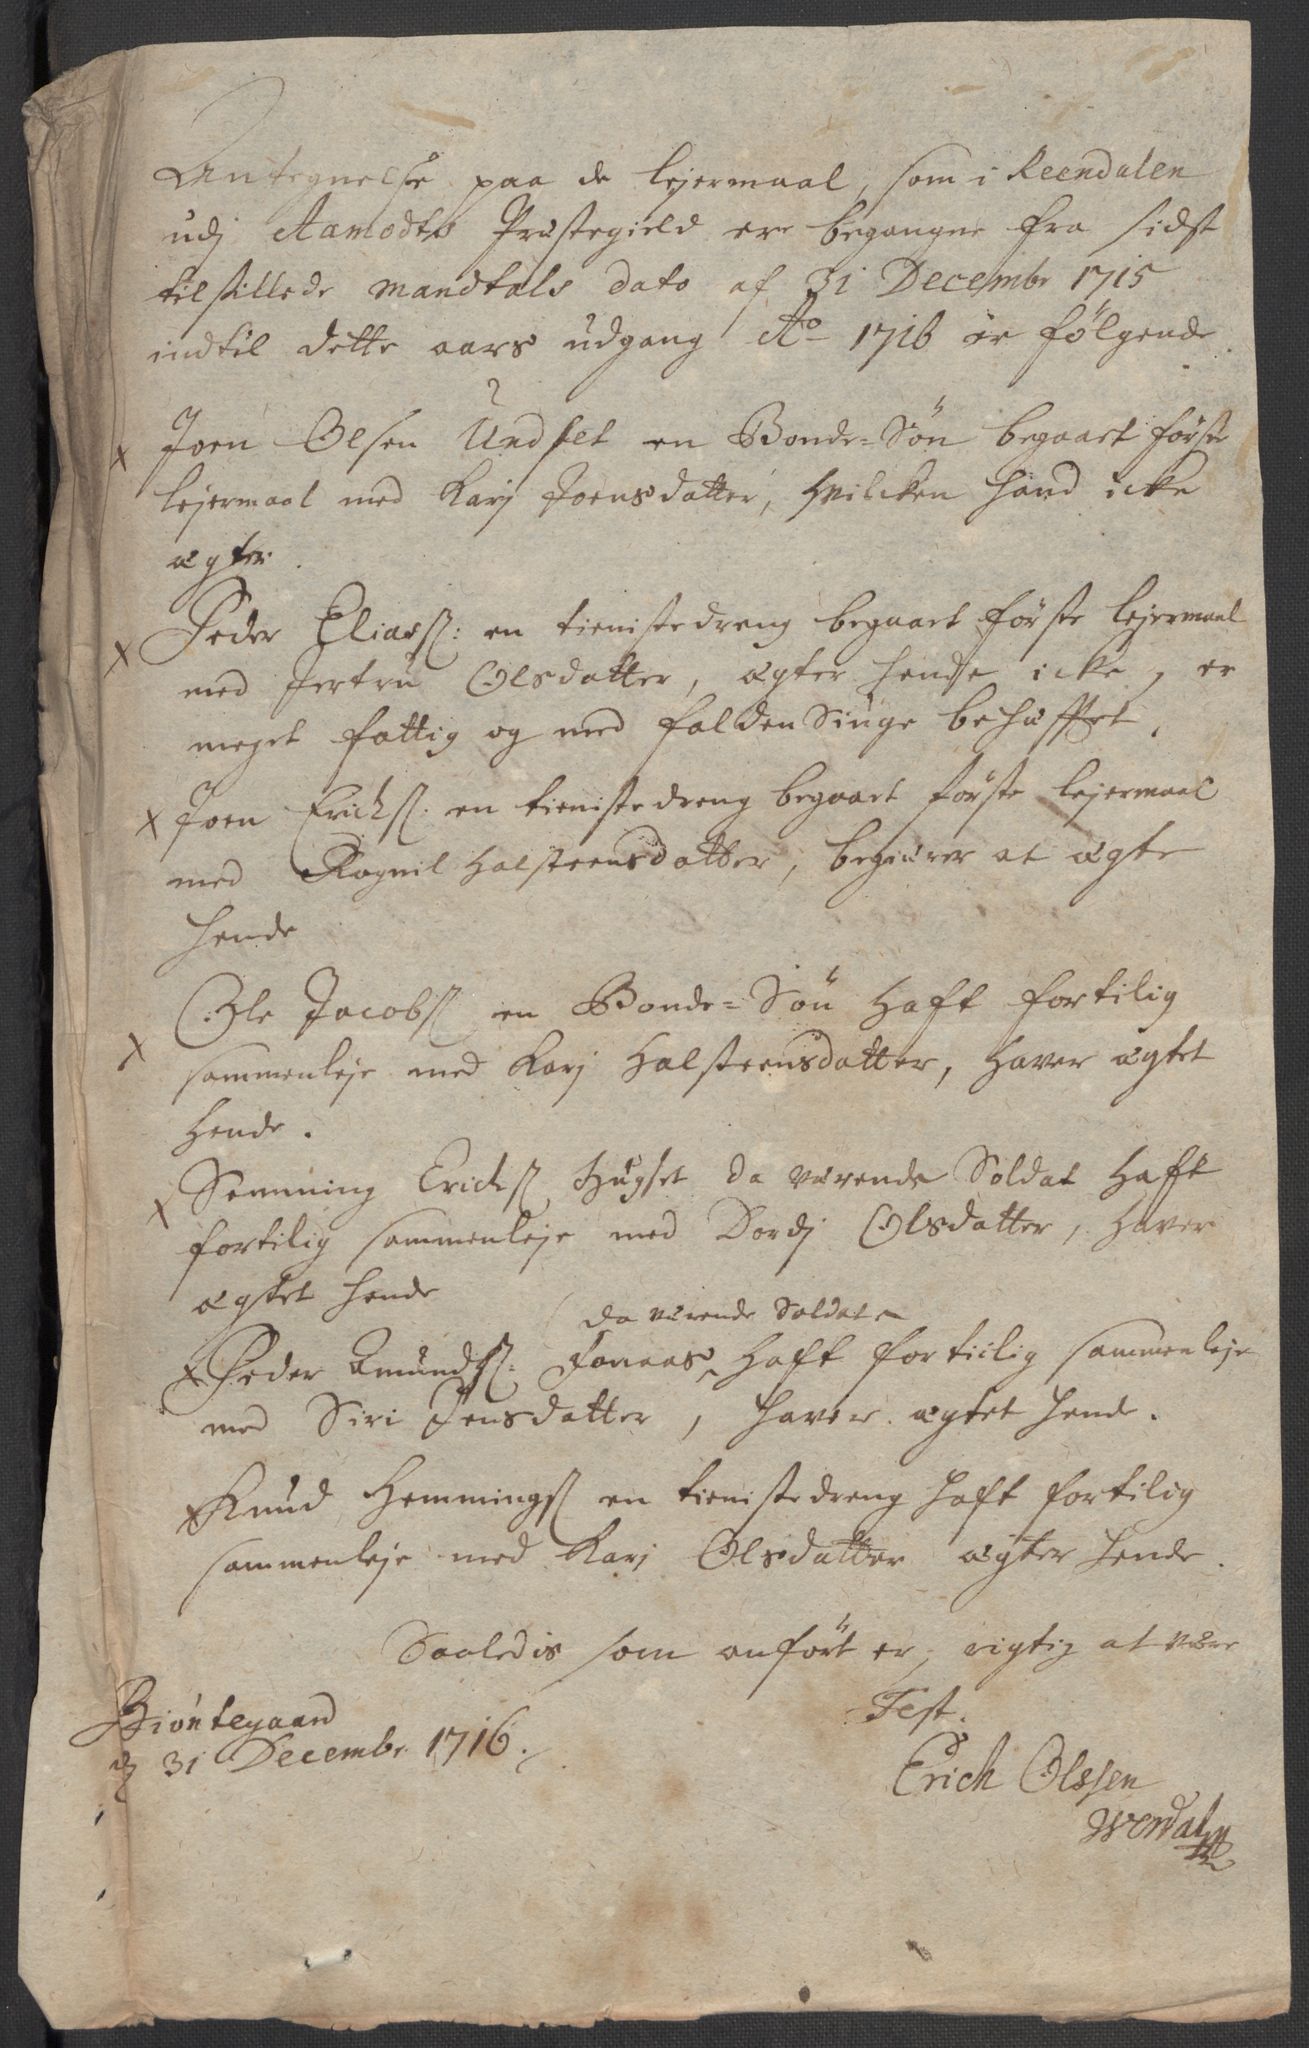 Antegnelse paa de lejermaal, som i Reendalen
udj Aamodts Præstegield ere begangne fra sidst
tilstillede Mandtals dato af 31 Decembr 1715
indtil dette aars udgang Ao 1716 er følgende.
x Joen Olsen Undset en Bonde=Søn begaaet første
lejermaal med Karj Joensdatter, hvilcken hand icke
ægter.
x Peder Eliasß: en tienistedreng begaaet første lejermaal
med Jertru Olsdatter, ægter hende icke, er
meget fattig og med falden Siuge behefftet,
x Joen Erichß: en tienistedreng begaaet første lejermaal
med Ragnil Halsteensdatter, begiærer at ægte
hende
x Ole Jacobß en Bonde=Søn haft fortilig
sammenleje med Karj Halsteensdatter, haver ægtet
hende.
x Semming Erichß Hugset da værende Soldat haft
fortilig sammenleje med Dordj Olsdatter, haver
ægtet hende
da værende Soldat
x Peder Amundß: Fonaas haft fortilig sammenleje
med Siri Jensdatter, haver ægtet hende.
x Knud Hemmingß en tienistedreng haft fortilig
sammenleje med Karj Olsdatter ægter hende.
Saaledis som anført er, rigtig at være
Test.
Biøntegaard
d 31 Decembr. 1716.
Erich Olssen
Werdalen